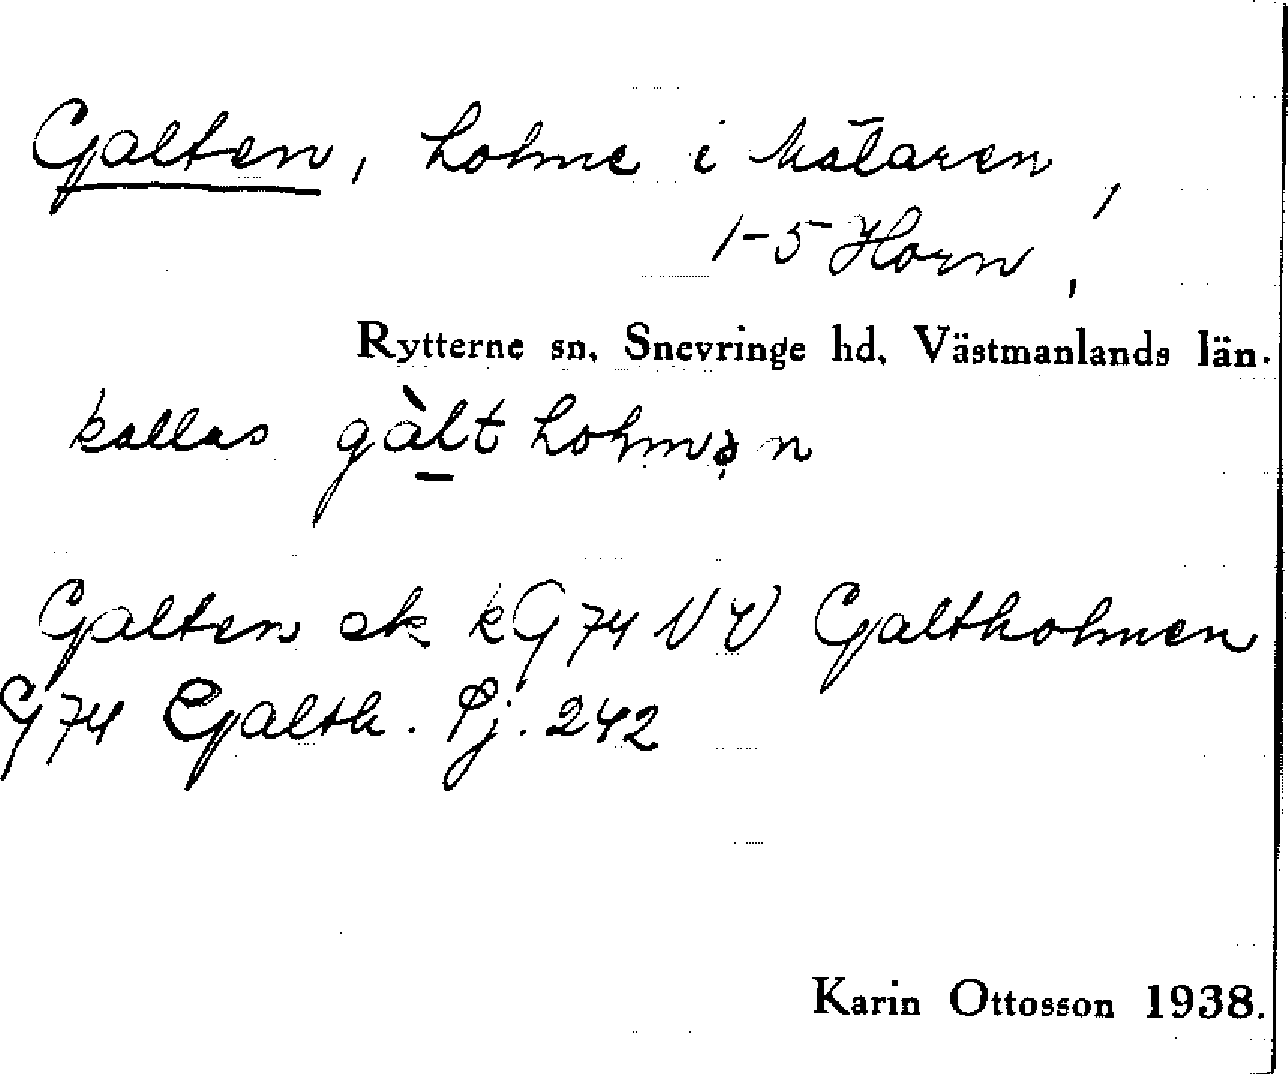 Galten, holme i Mälaren,
1-5 Horn,
Rytterne sn. Snevringe hd. Västmanlands län.
kallas gàlt holmən
Galten ek kG74 NV Galtholmen
G74 Galth. Pj. 242
Karin Ottosson 1938.